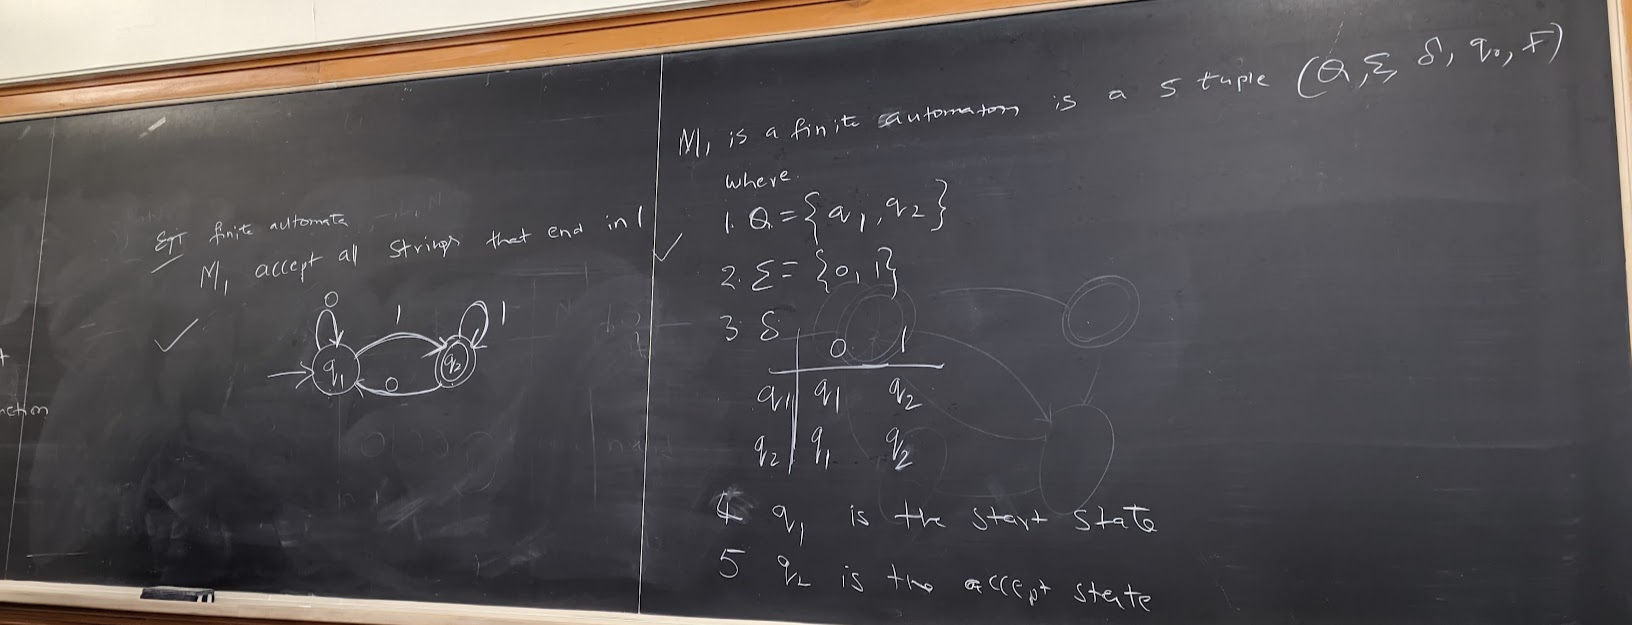 nction
finite automate
M₁ accept all strings that end in 1
0
1
1
q₁
q₂
0
M₁ is a finite automaton is a 5 tuple (Q, Σ, δ, q₀, F)
where.
1. Q = {q₁, q₂}
2. Σ = {0, 1}
3. δ
0 1
q₁ q₁ q₂
q₂ q₁ q₂
4 q₁ is the start state
5 q₂ is the accept state